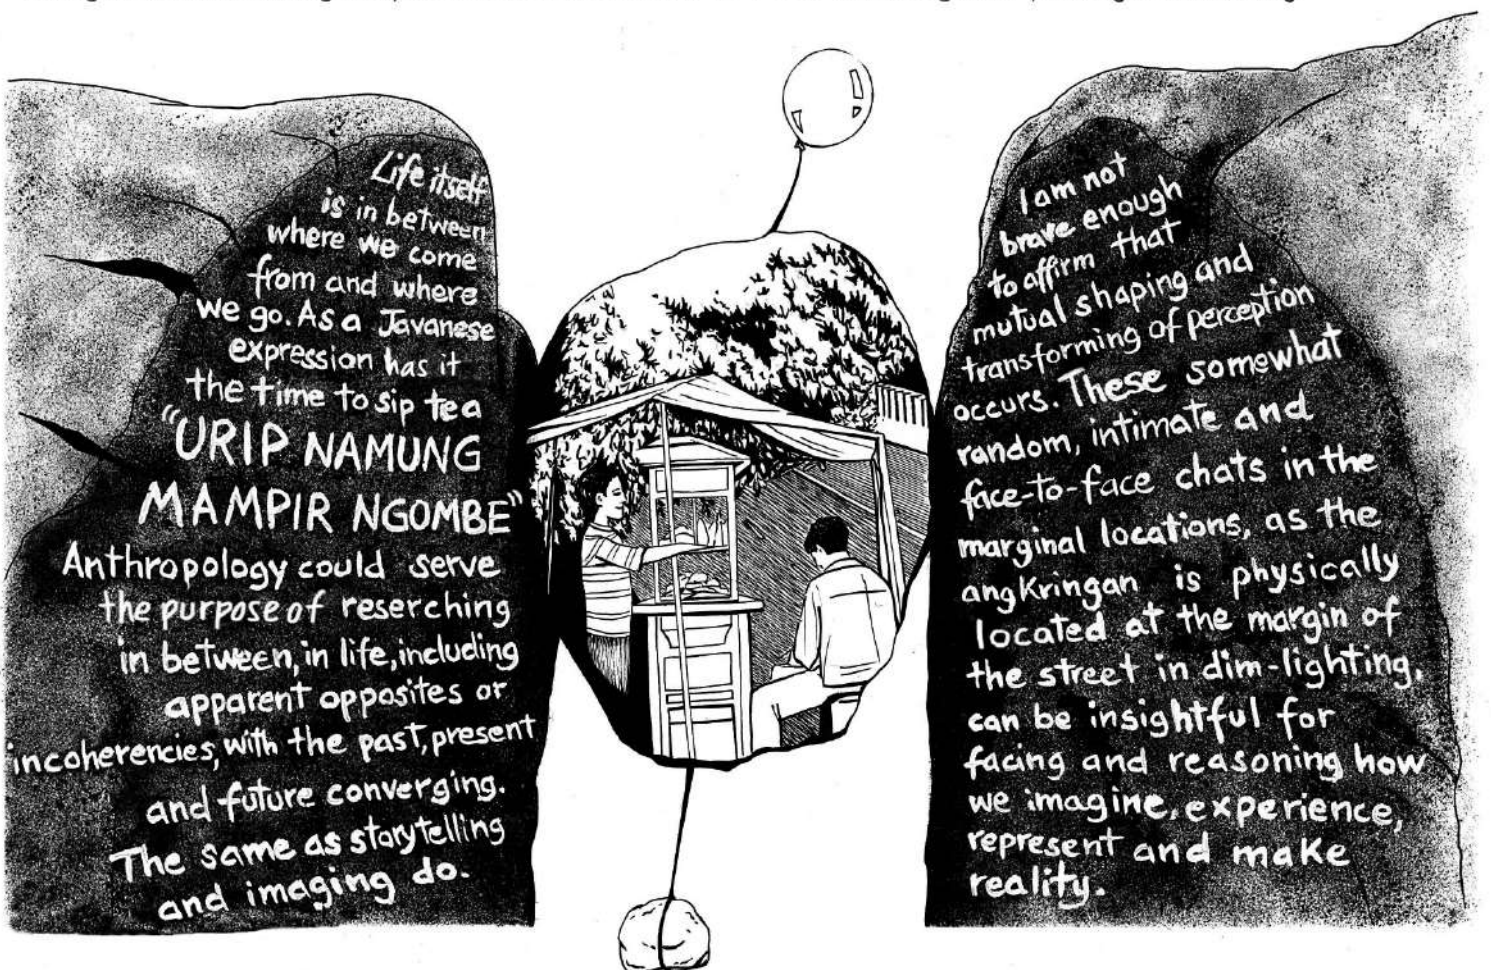 Life itself
is in between
where we come
from and where
we go. As a Javanese
expression has it
the time to sip tea
"URIP NAMUNG
MAMPIR NGOMBE"
Anthropology could serve
the purpose of reserching
in between, in life, including
apparent opposites or
incoherencies, with the past, present
and future converging.
The same as storytelling
and imaging do.
I am not
brave enough
to affirm that
mutual shaping and
transforming of perception
occurs. These somewhat
random, intimate and
face-to-face chats in the
marginal locations, as the
angkringan is physically
located at the margin of
the street in dim-lighting,
can be insightful for
facing and reasoning how
we imagine, experience,
represent and make
reality.